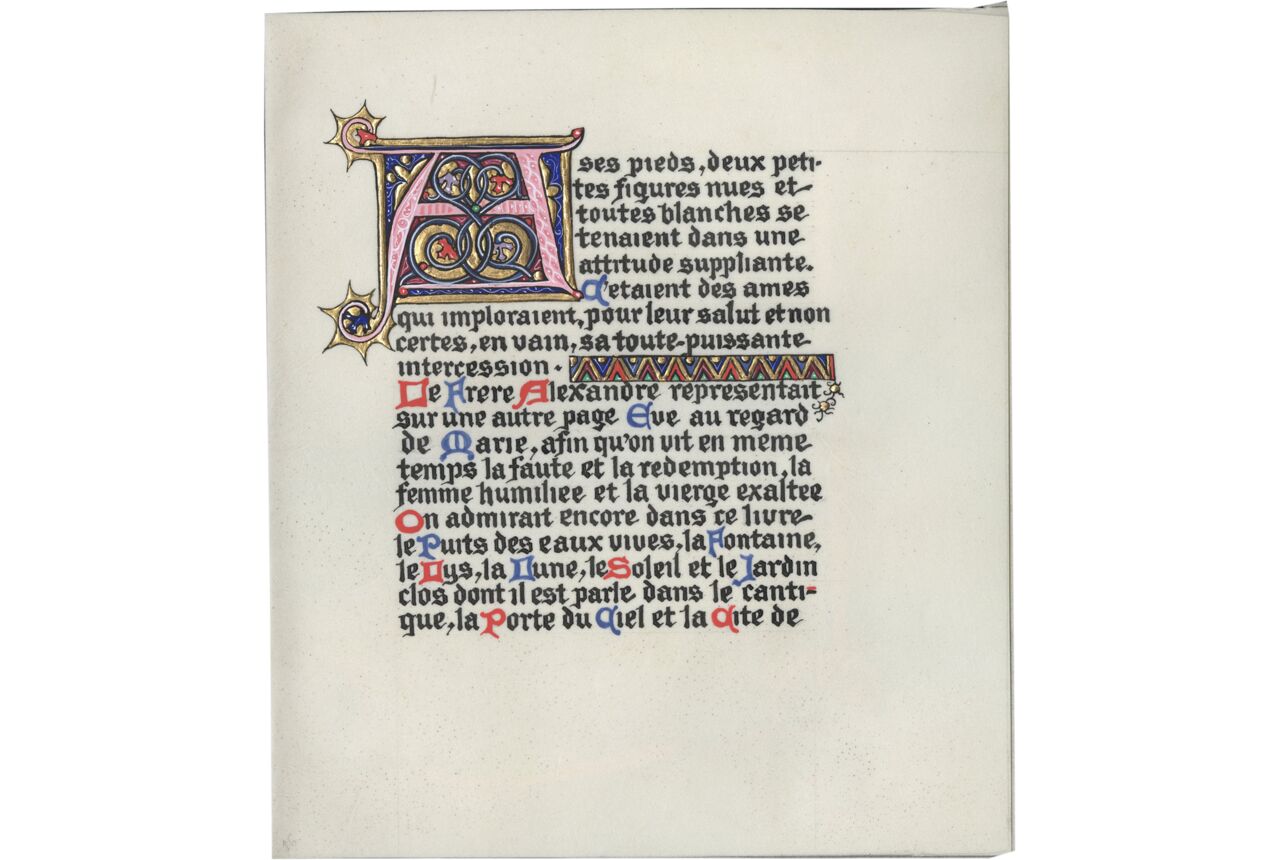 A ses pieds, deux peti-
tes figures nues et
toutes blanches se
tenaient dans une
attitude suppliante.
C'etaient des ames
qui imploraient, pour leur salut et non
certes, en vain, sa toute-puissante
intercession.
Le Frere Alexandre representait
sur une autre page Eve au regard
de Marie, afin qu'on vit en meme
temps la faute et la redemption, la
femme humiliee et la vierge exaltee
On admirait encore dans ce livre
le Puits des eaux vives, la Fontaine,
le Lys, la Lune, le Soleil et le Jardin
clos dont il est parle dans le canti-
que, la Porte du Ciel et la Cite de